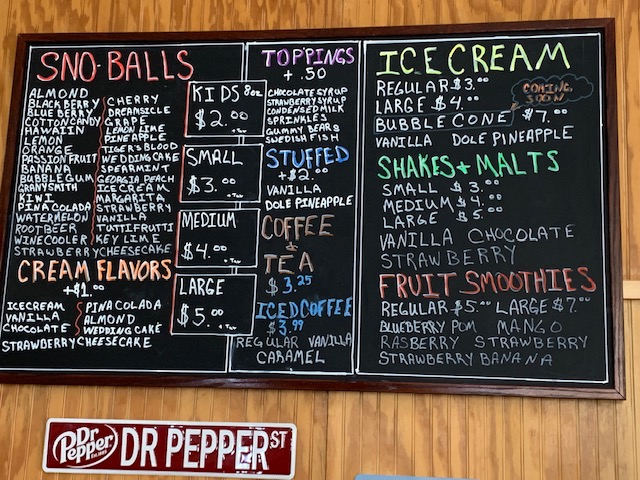 SNO-BALLS
ALMOND
BLACKBERRY
BLUEBERRY
COTTONCANDY
HAWAIIN
LEMON
ORANGE
PASSION FRUIT
BANANA
BUBBLEGUM
GRANYSMITH
KIWI
PINA COLADA
WATERMELON
ROOTBEER
WINECOOLER
STRAWBERRYCHEESECAKE
CHERRY
DREAMSICLE
GRAPE
LEMON LIME
PINEAPPLE
TIGER'S BLOOD
WEDDING CAKE
SPEARMINT
GEORGIA PEACH
ICE CREAM
MARGARITA
STRAWBERRY
VANILLA
TUTTIFRUTTI
KEY LIME
CREAM FLAVORS
+$1.00
ICECREAM
VANILLA
CHOCOLATE
STRAWBERRYCHEESECAKE
PINA COLADA
ALMOND
WEDDING CAKE
KIDS 8oz
$2.00
+ Tax
SMALL
$3.00
+ Tax
MEDIUM
$4.00
+ Tax
LARGE
$5.00
+ Tax
TOPPINGS
+.50
CHOCOLATE SYRUP
STRAWBERRY SYRUP
CONDENSED MILK
SPRINKLES
GUMMY BEARS
SWEDISH FISH
STUFFED
+$2.00
VANILLA
DOLE PINEAPPLE
COFFEE
&
TEA
$3.25
ICED COFFEE
$3.99
REGULAR VANILLA
CARAMEL
ICE CREAM
REGULAR $3.00
LARGE $4.00
COMING SOON
BUBBLE CONE $7.00
VANILLA DOLE PINEAPPLE
SHAKES + MALTS
SMALL $3.00
MEDIUM $4.00
LARGE $5.00
VANILLA CHOCOLATE
STRAWBERRY
FRUIT SMOOTHIES
REGULAR $5.00 LARGE $7.00
BLUEBERRY POM MANGO
RASBERRY STRAWBERRY
STRAWBERRY BANANA
Dr Pepper
DR PEPPER ST